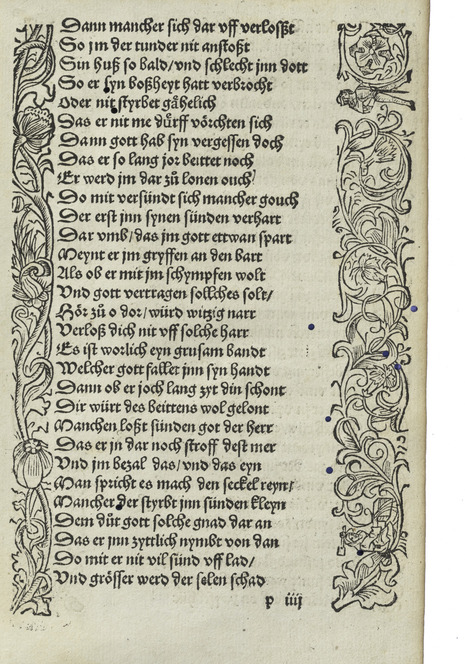 Dann mancher sich dar vff verloßt
So jm der tunder nit anstoßt
Sin huß so bald/vnd schlecht jnn dott
So er syn boßheyt hatt verbrocht
Oder nit styrbet gåhelich
Das er nit me dürff vörchten sich
Dann gott hab syn vergessen doch
Das er so lang jor beittet noch
Er werd jm dar zů lonen ouch/
Do mit versündt sich mancher gouch
Der erst jnn synen sünden verhart
Dar vmb/das jm gott ettwan spart
Meynt er jm gryffen an den bart
Als ob er mit jm schympfen wolt
Vnd gott vertragen sollches solt/
Hör zů o dor/würd witzig narr
Verloß dich nit vff solche harr
Es ist worlich eyn grusam bandt
Welcher gott fallet jnn syn handt
Dann ob er joch lang zyt din schont
Dir würt des beittens wol gelont
Manchen loßt sünden got der herr
Das er jn dar noch stroff dest mer
Vnd jm bezal das/vnd das eyn
Man spricht es mach den seckel reyn/
Mancher der styrbt jnn sünden kleyn
Dem důt gott solche gnad dar an
Das er jnn zyttlich nymbt von dan
Do mit er nit vil sünd vff lad/
Vnd grösser werd der selen schad
p iiij